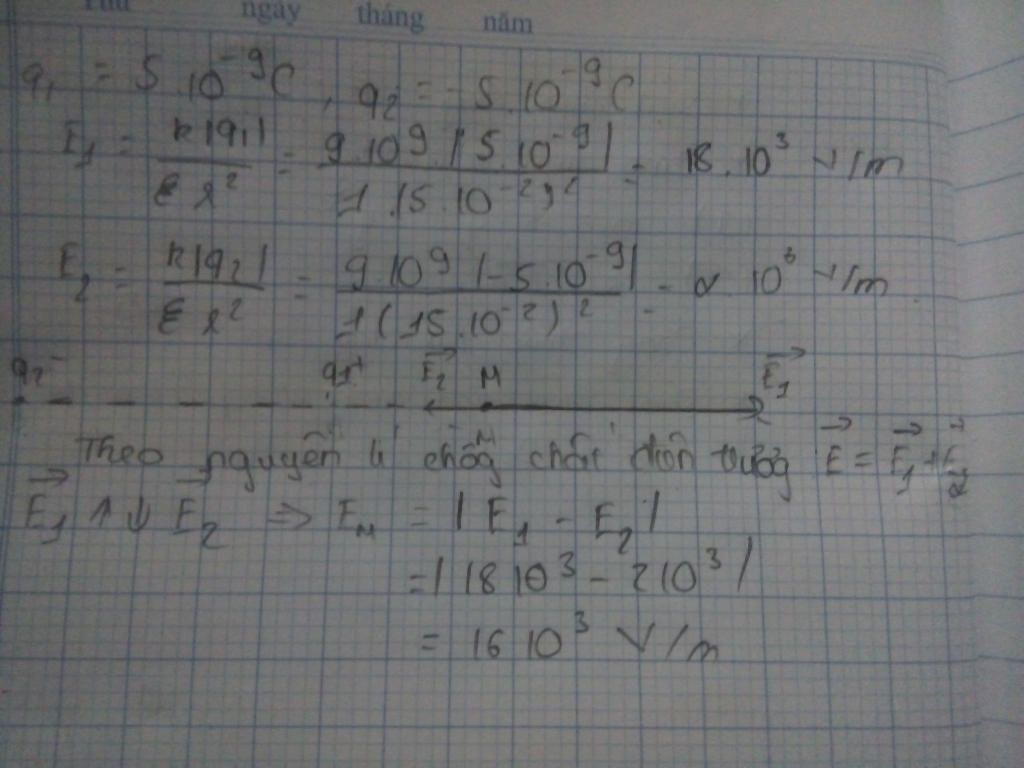 ngày tháng năm
q₁ = 5.10⁻⁹C, q₂ = -5.10⁻⁹C
E₁ = k|q₁| / εr² = 9.10⁹|5.10⁻⁹| / 1.(5.10⁻²)² = 18.10³ V/m
E₂ = k|q₂| / εr² = 9.10⁹|-5.10⁻⁹| / 1(15.10⁻²)² = 2.10³ V/m
q₂⁻ q₁⁺ E₂→ M E₁→
Theo nguyên lí chồng chất điện trường E→ = E₁→ + E₂→
E₁→ ↑↓ E₂→ ⇒ Eₘ = |E₁ - E₂|
= |18 10³ - 2 10³|
= 16 10³ V/m